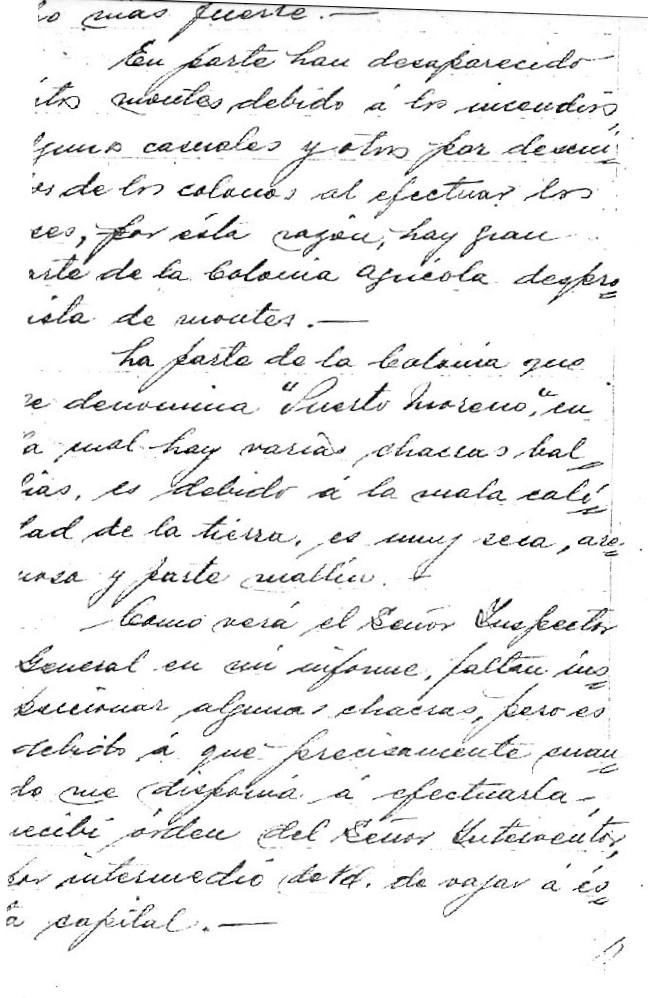 mas fuerte.—
En parte han desaparecido
montes debido á los incendios,
casuales y otros por descui-
de los colonos al efectuar los
por ésta razón, hay gran
de la Colonia agricola despro=
ista de montes.—
La parte de la Colonia que
denomina "Puerto Moreno", en
a cual hay varias chacras bal=
ias, es debido á la mala cali=
dad de la tierra, es muy seca, are=
nosa y parte mallin.—
Como verá el Señor Inspector
General en mi informe, faltan ins=
peccionar algunas chacras, pero es
debido á que precisamente cuan=
do me disponiá á efectuarla,
recibí órden del Señor Interventor,
por intermedio de Vd. de vajar á és=
a capital.—